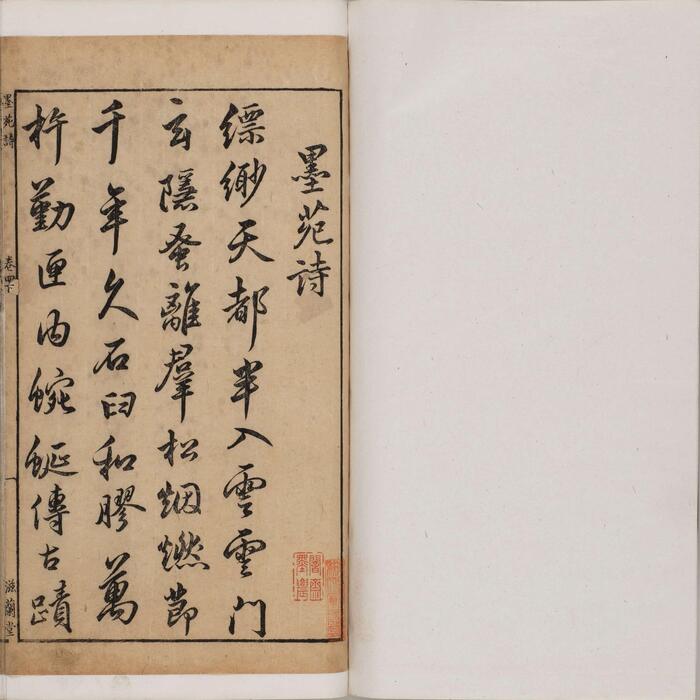 墨苑詩
縹緲天都半入雲雲門
玄隱蚤離羣松烟燃節
千年久石臼和膠萬
杵勤匣內蜿蜒傳古蹟
墨苑詩 卷四下 一 滋蘭堂